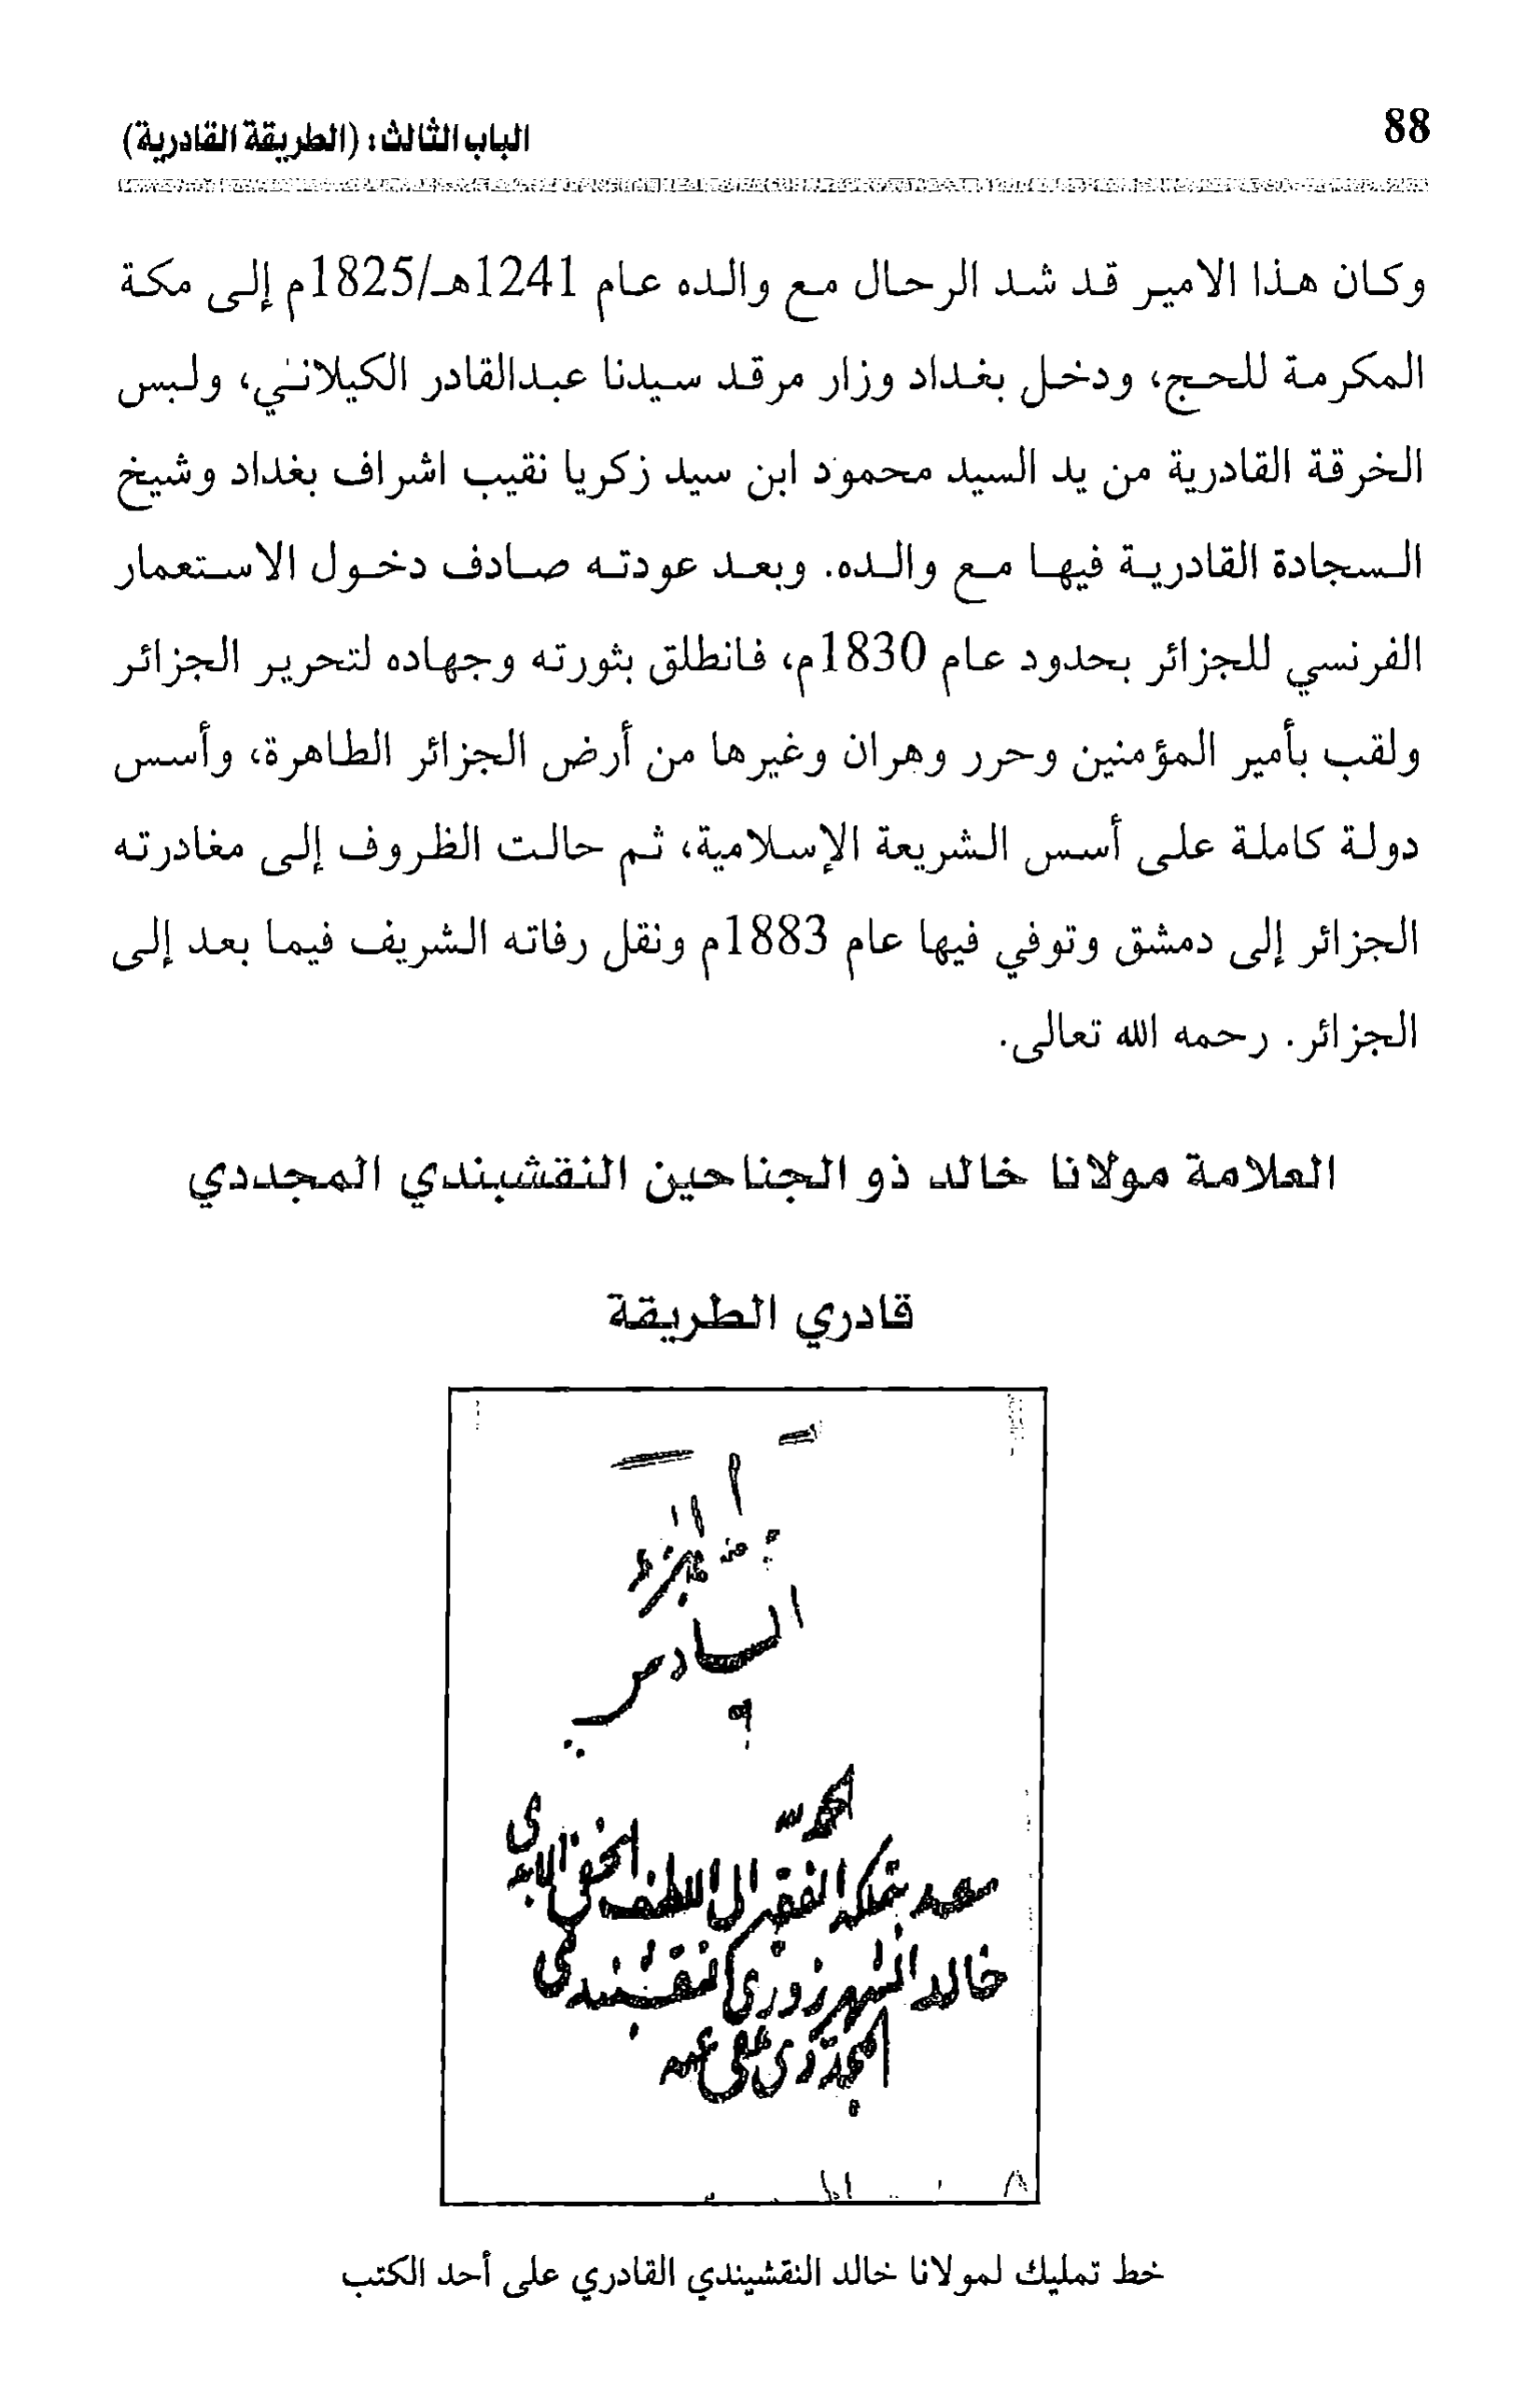 88
الباب الثالث: (الطريقة القادرية)
وكان هذا الامير قد شد الرحال مع والده عام 1241هـ/1825م إلى مكة
المكرمة للحج، ودخل بغداد وزار مرقد سيدنا عبدالقادر الكيلاني، ولبس
الخرقة القادرية من يد السيد محمود ابن سيد زكريا نقيب اشراف بغداد وشيخ
السجادة القادرية فيها مع والده. وبعد عودته صادف دخول الاستعمار
الفرنسي للجزائر بحدود عام 1830م، فانطلق بثورته وجهاده لتحرير الجزائر
ولقب بأمير المؤمنين وحرر وهران وغيرها من أرض الجزائر الطاهرة، وأسس
دولة كاملة على أسس الشريعة الإسلامية، ثم حالت الظروف إلى مغادرته
الجزائر إلى دمشق وتوفي فيها عام 1883م ونقل رفاته الشريف فيما بعد إلى
الجزائر. رحمه الله تعالى.
العلامة مولانا خالد ذو الجناحين النقشبندي المجددي
قادري الطريقة
الفقير الى اللطف
خالد الشهرزوري النقشبندي
المجددي عفي عنه
خط تمليك لمولانا خالد النقشيندي القادري على أحد الكتب